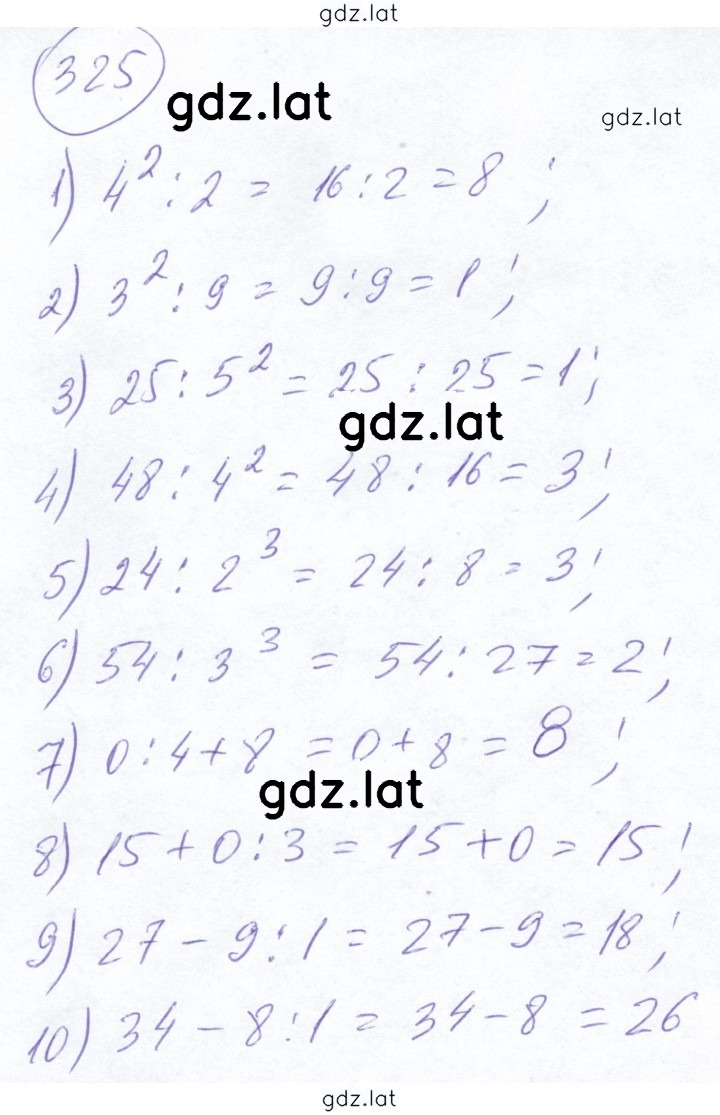 gdz.lat
325
gdz.lat
gdz.lat
1) 4² : 2 = 16 : 2 = 8 ;
2) 3² : 9 = 9 : 9 = 1 ;
3) 25 : 5² = 25 : 25 = 1 ;
gdz.lat
4) 48 : 4² = 48 : 16 = 3 ;
5) 24 : 2³ = 24 : 8 = 3 ;
6) 54 : 3³ = 54 : 27 = 2 ;
7) 0 : 4 + 8 = 0 + 8 = 8 ;
gdz.lat
8) 15 + 0 : 3 = 15 + 0 = 15 ;
9) 27 - 9 : 1 = 27 - 9 = 18 ;
10) 34 - 8 : 1 = 34 - 8 = 26
gdz.lat